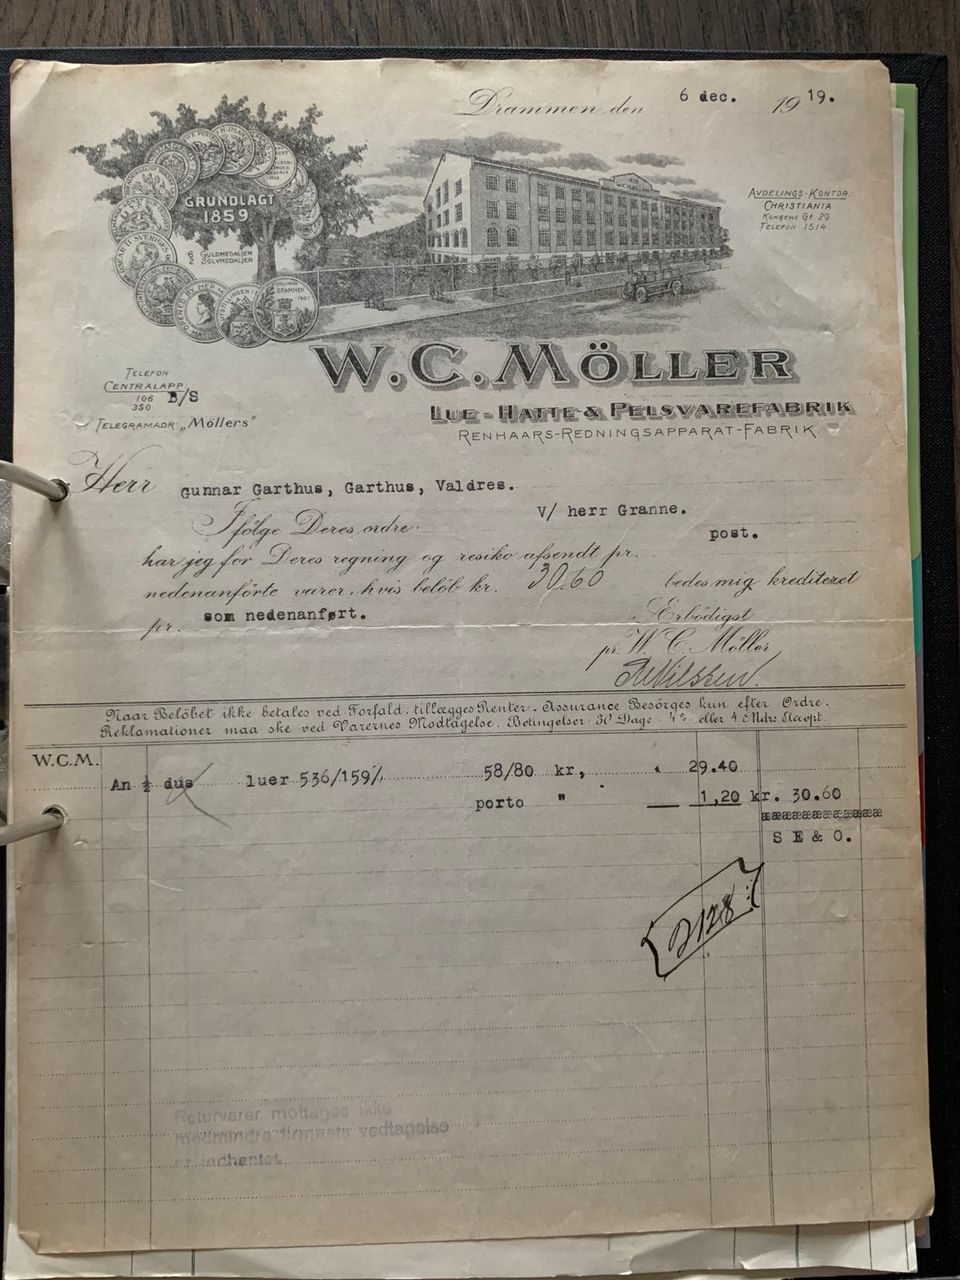 Drammen den 6 dec. 1919.
GRUNDLAGT
1859
6 GULDMEDALJER
2 SÖLVMEDALJER
DRAMMEN
1901
W.C. MÖLLER
AVDELINGS-KONTOR
CHRISTIANIA
KONGENS GT. 29
TELEFON 1514
W.C. MÖLLER
LUE-HATTE & PELSVAREFABRIK
RENHAARS-REDNINGSAPPARAT-FABRIK.
TELEFON
CENTRALAPP.
106 B/S
350
TELEGRAMADR. „Möllers”
Herr Gunnar Garthus, Garthus, Valdres.
V/ herr Granne.
Ifölge Deres ordre
post.
har jeg for Deres regning og resiko afsendt pr.
nedenanförte varer, hvis belöb kr. 30.60 bedes mig krediteret
pr. som nedenanført.
Erbödigst
pr. W. C. Möller
Naar Belöbet ikke betales ved Forfald, tillægges Renter. Assurance Besörges kun efter Ordre.
Reklamationer maa ske ved Varernes Modtagelse. Betingelser: 30 Dage 4% eller 4 Mdrs. Accept.
W.C.M. An ½ dus luer 536/159% 58/80 kr, 29.40
porto " 1,20 kr. 30.60
S E & O.
2128
Returvarer mottages ikke
medmindre firmaets vedtagelse
er indhentet.